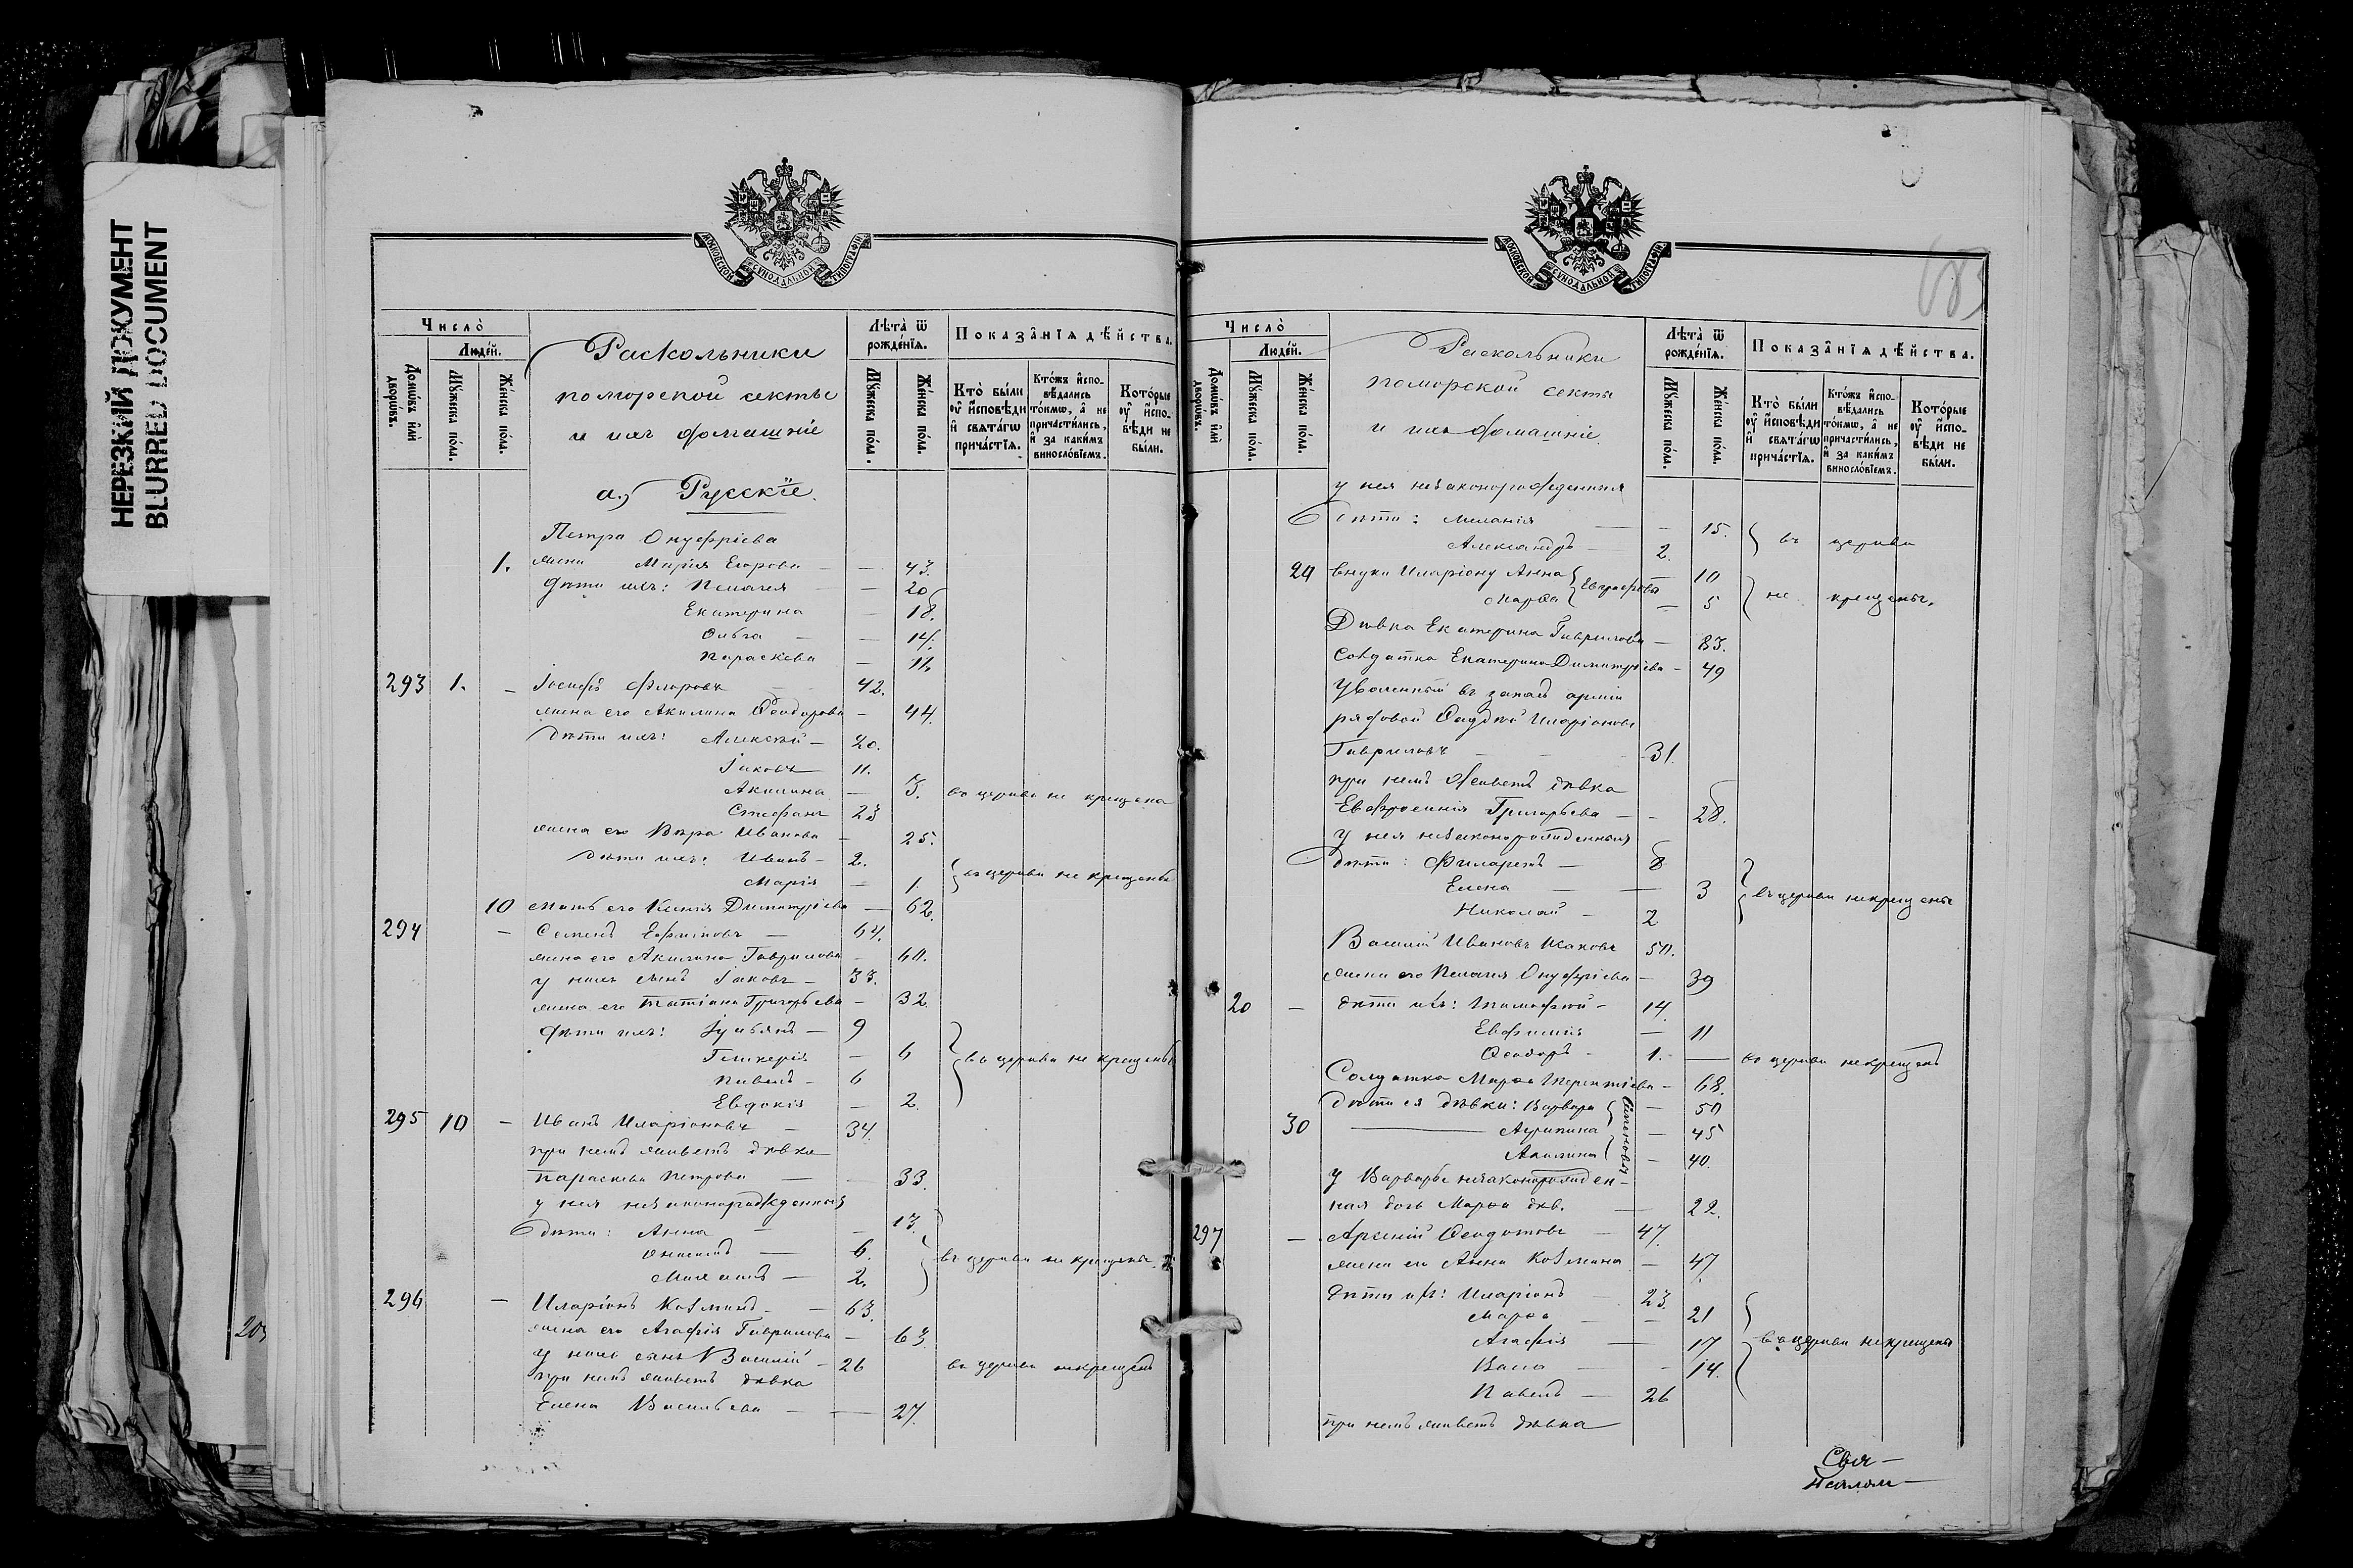 НЕРЕЗКИЙ ДОКУМЕНТ
BLURRED DOCUMENT
203
МОСКОВСКОЙ СѴНОДАЛЬНОЙ ТИПОГРАФІИ
Число̀
Люде́й.
Домѡ́въ и҆лѝ дворѡ́въ.
Мꙋ́жеска по́ла.
Же́нска по́ла.
Раскольники
поморской секты
и ихъ домашніе
Лѣта̀ ѿ рожде́нїѧ.
Мꙋ́жеска по́ла.
Же́нска по́ла.
Показа̂нїѧ дѣ́йства.
Кто̀ бы́ли оу҆ и҆сповѣди и҆ свѧта́гѡ прича́стїѧ.
Кто́жъ и҆сповѣдались то́кмѡ, а҆ не причасти́лись, и҆ за каки́мъ винослóвїемъ.
Кото́рые оу҆ и҆сповѣди не бы́ли.
а.) Русскіе.
Петра Онуфріева
1. жена Марія Егорова — — 43.
дѣти ихъ: Пелагея — 20
Екатерина — 18.
Ольга — — 14.
Параскева — 11.
293 1. – Іосифъ Флоровъ 42.
жена его Акилина Ѳеодорова – 44.
дѣти ихъ: Алексѣй – 20.
Іаковъ 11.
Акилина — 5. въ церкви не крещена
Стефанъ 23
жена его Вѣра Иванова – 25.
дѣти ихъ: Иванъ – 2.
Марія — 1. въ церкви не крещены
10 мать его Ксенія Димитріева — 62.
294 – Семенъ Ефимовъ — 64.
жена его Акилина Гаврилова – 60.
у нихъ сынъ Іаковъ – 33.
жена его Татіана Григорьева – 32.
дѣти ихъ: Іуліанъ — 9
Гликерія — 6 въ церкви не крещены
Павелъ – 6
Евдокія — 2.
295 10 – Иванъ Иларіоновъ – 34.
при немъ живетъ дѣвка
Параскева Петрова — — 33.
у нея незаконорожденныя
дѣти: Анна — — 13.
Онисимъ — 6. въ церкви не крещены.
2.
296 – Иларіонъ Козминъ – – 63.
жена его Агафія Гаврилова – 63.
у нихъ сынъ Василій – 26 въ церкви некрещенъ
при немъ живетъ дѣвка
Елена Васильева – — 27.
МОСКОВСКОЙ СѴНОДАЛЬНОЙ ТИПОГРАФІИ
Число̀
Люде́й.
Домѡ́въ и҆лѝ дворѡ́въ.
Мꙋ́жеска по́ла.
Же́нска по́ла.
Раскольники
поморской секты
и ихъ домашніе.
Лѣта̀ ѿ рожде́нїѧ.
Мꙋ́жеска по́ла.
Же́нска по́ла.
Показа̂нїѧ дѣ́йства.
Кто̀ бы́ли оу҆ и҆сповѣди и҆ свѧта́гѡ прича́стїѧ.
Кто́жъ и҆сповѣдались то́кмѡ, а҆ не причасти́лись, и҆ за каки́мъ винослóвїемъ.
Кото́рые оу҆ и҆сповѣди не бы́ли.
у нея незаконорожденныя
дѣти: Меланія — – 15. въ церкви
Александръ – 2.
20 внуки Иларіону Анна — 10 не крещены.
Марѳа — 5
Дѣвка Екатерина Гаврилова – 83.
Солдатка Екатерина Димитріева – 49
Уволенный въ запасъ арміи
рядовой Иларіоновъ
Гавриловъ – – 31.
при немъ живетъ дѣвка
Евфросинія Григорьева — – 28.
у нея незаконорожденныя
дѣти: Филаретъ — 8
Елена — — 3 въ церкви некрещены
Николай – 2
Василій Ивановъ 50.
жена его Пелагея Онуфріева – 39
20 – дѣти ихъ: Тимофей – 14.
Евфимія — 11
Ѳеодоръ – 1. — въ церкви некрещенъ
Солдатка Марѳа Терентіева – 68.
дѣти ея дѣвки: Варвара — 50
30 — Агрипина — 45
Акилина — 40.
у Варвары незаконорожден-
ная дочь Марѳа дѣв. — 22.
297 – Арсеній Ѳеодотовъ — 47.
жена его Анна Козмина – 47.
дѣти ихъ: Иларіонъ – 23.
Марѳа – — 21
Агафія — 17 въ церкви некрещены
Васса — – 14.
Павелъ — 26
при немъ живетъ дѣвка
Свя-